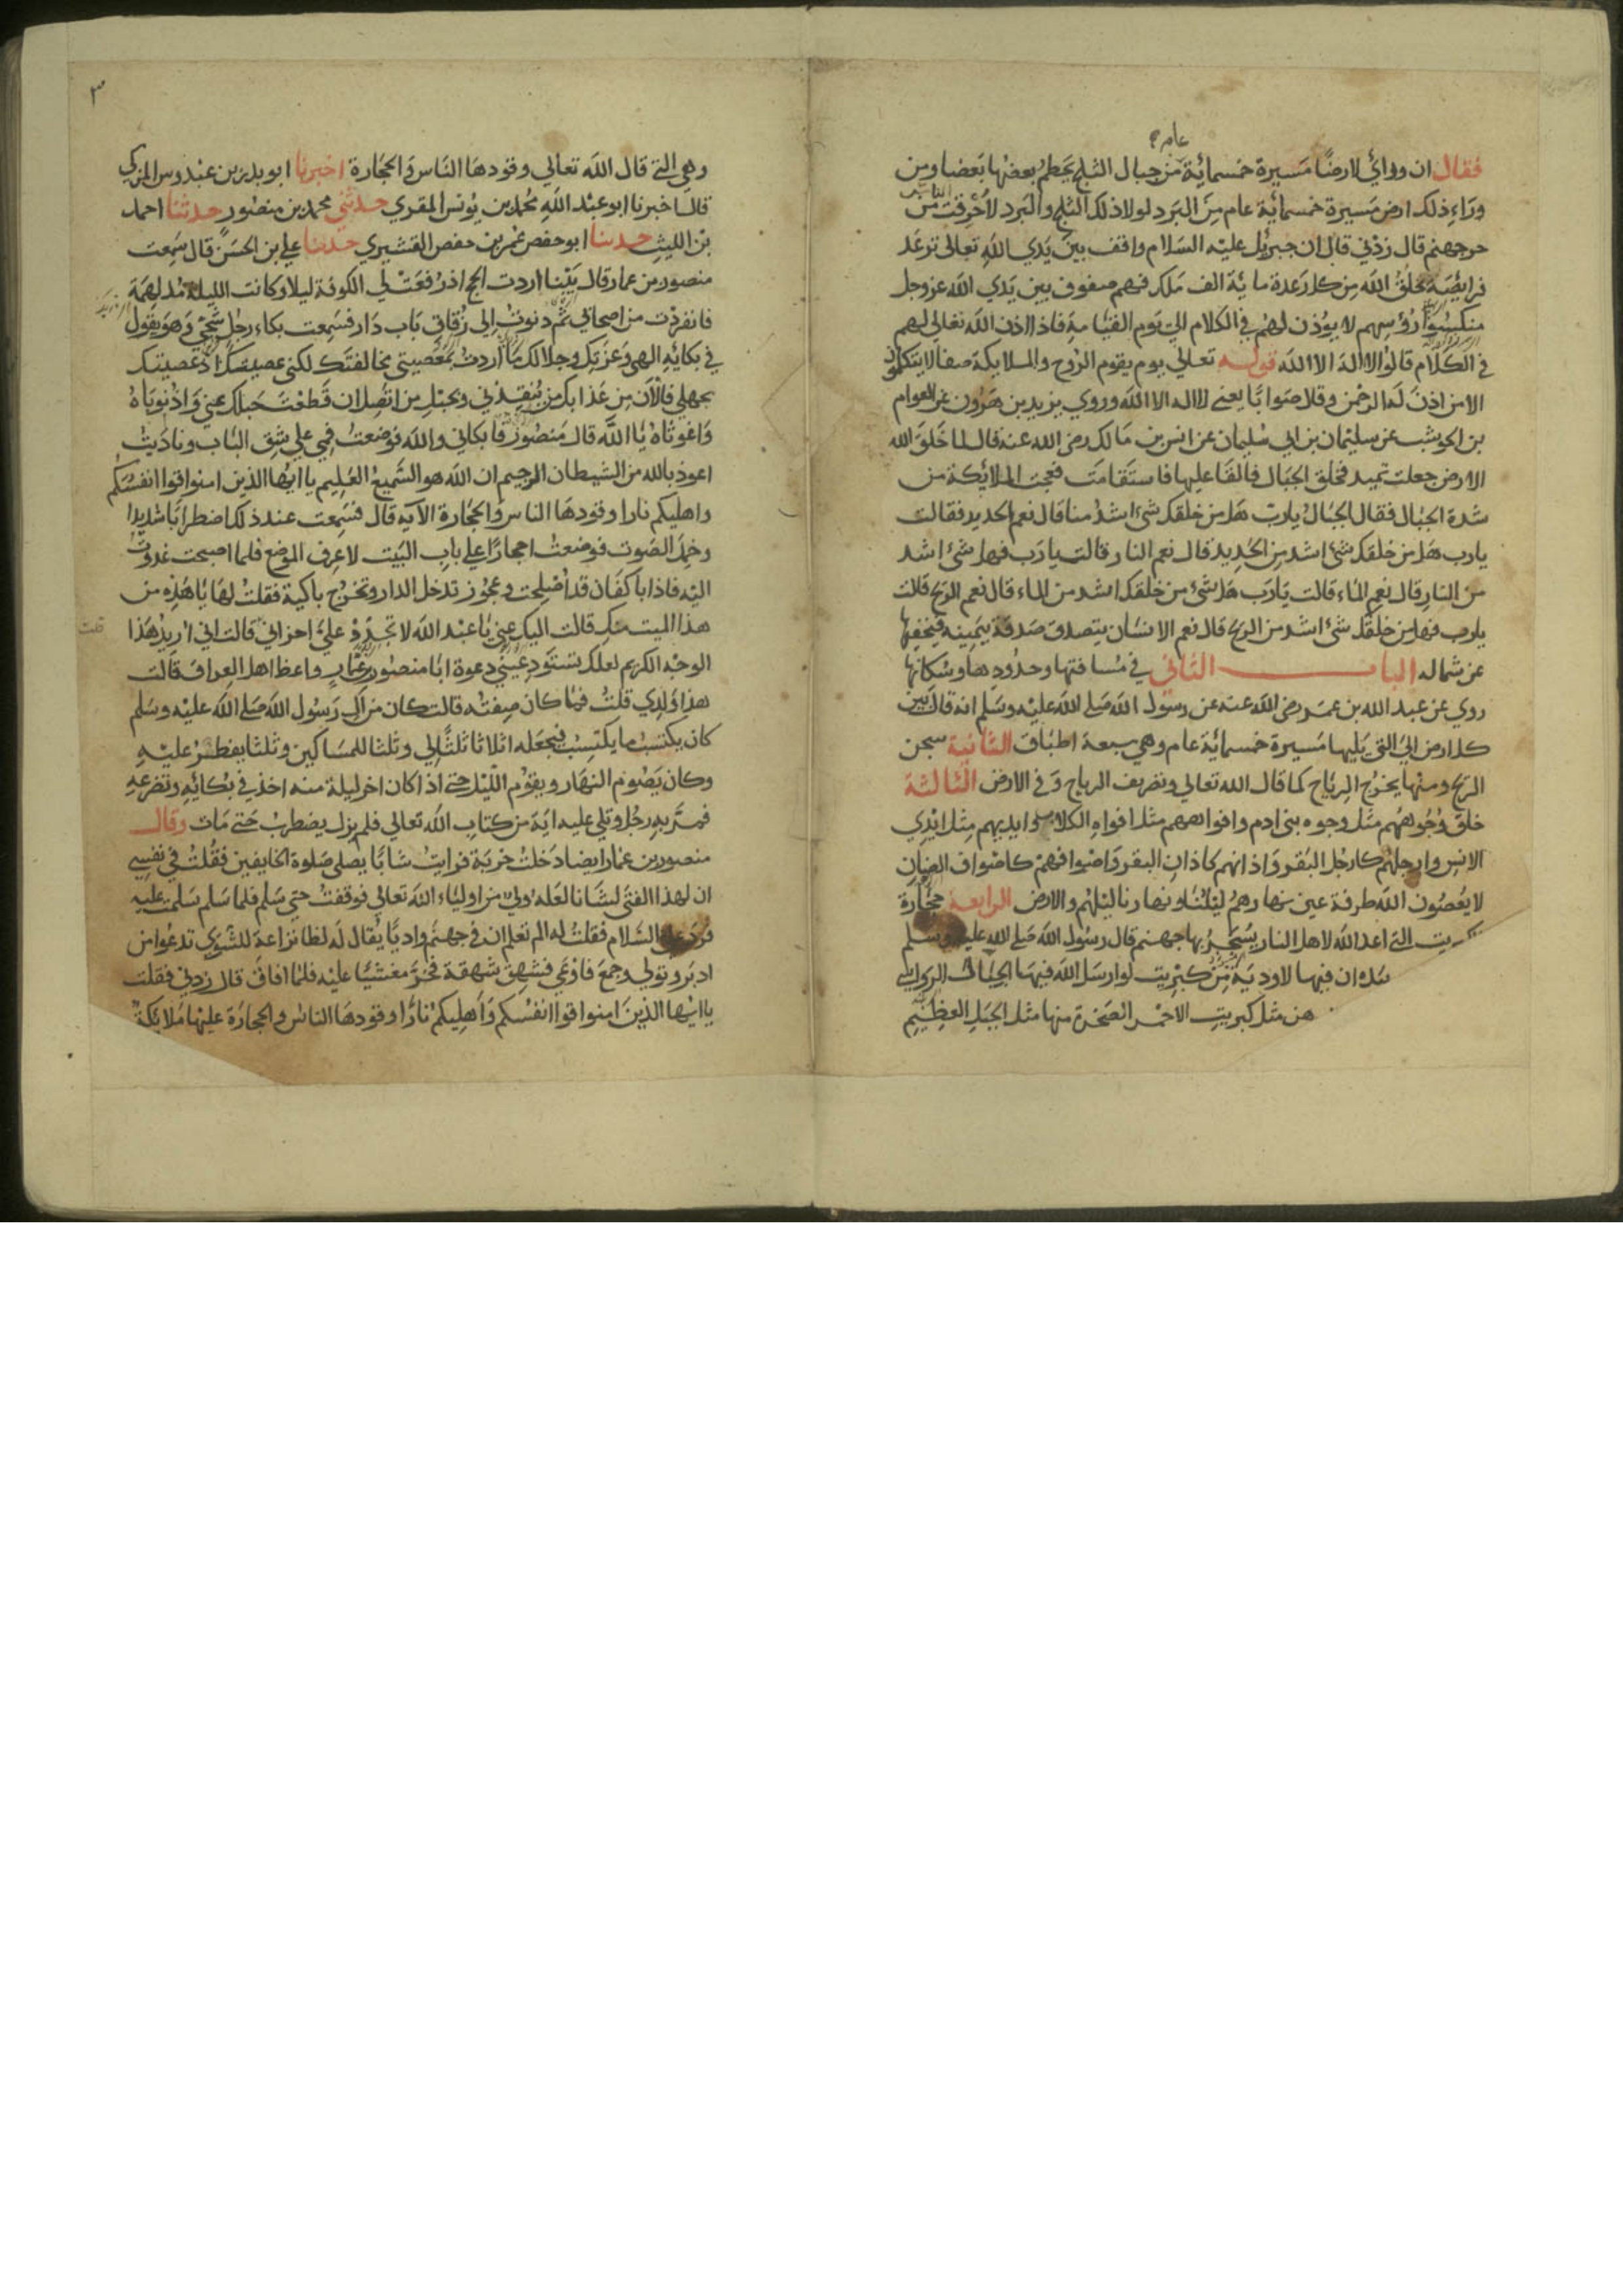 عام
فقال ان وراي لارضا مسيرة خمسمائة من جبال الثلج يحطم بعضها بعضا ومن
وراء ذلك ارض مسيرة خمسمائة عام من البرد لولا ذلك الثلج والبرد لاحرقت من
حر جهنم قال زدني قال ان جبريل عليه السلام واقف بين يدي الله تعالى ترعد
فرايصه يخلق الله من كل رعدة ماية الف ملك فهم صفوف بين يدي الله عز وجل
منكسوا رؤسهم لا يوذن لهم في الكلام الى يوم القيامة فاذا اذن الله تعالى لهم
في الكلام قالوا لا اله الا الله قوله تعالى يوم يقوم الروح والملايكة صفا لا يتكلمون
الا من اذن له الرحمن وقال صوابا يعني لا اله الا الله وروي يزيد بن هرون عن العوام
بن الحوشب عن سليمان بن ابي سليمان عن انس بن مالك رضي الله عنه قال لما خلق الله
الارض جعلت تميد فخلق الجبال فالقا عليها فاستقامت فعجبت الملائكة من
شدة الجبال فقال الجبال يارب هل من خلقك شئ اشد منا قال نعم الحديد فقالت
يارب هل من خلقك شئ اشد من الحديد قال نعم النار قالت يارب فهل شئ اشد
من النار قال نعم الماء قالت يارب هل شئ من خلقك اشد من الماء قال نعم الريح قالت
يارب فهل من خلقك شئ اشد من الريح قال نعم الانسان يتصدق صدقة بيمينه فيخفيها
عن شماله الباب الثاني في مسافتها وحدودها وسكانها
روي عن عبد الله بن عمر رضي الله عنه عن رسول الله صلى الله عليه وسلم انه قال بين
كل ارض الى التي يليها مسيرة خمسمائة عام وهي سبعة اطباق الثانية سجن
الريح ومنها يخرج الرياح كما قال الله تعالى وتصريف الرياح وفي الارض الثالثة
خلق وجوههم مثل وجوه بني ادم وافواههم مثل افواه الكلاب وايديهم مثل ايدي
الانس وارجلهم كارجل البقر واذانهم كاذان البقر واصوافهم كاصواف
لا يعصون الله طرفة عين نهارهم ليلنا ونهارنا ليلهم والارض الرابعة حجارة
كبريت التي اعد الله لاهل النار يسجر بها جهنم قال رسول الله صلى الله عليه وسلم
ان فيها لاودية من كبريت لو ارسل الله فيها الجبال الرواسي
هن مثل كبريت الاحمر الصخرة منها مثل الجبل العظيم
٣
وهي التي قال الله تعالى وقودها الناس والحجارة اخبرنا ابو بدر بن عبدوس المزكي
قال اخبرنا ابو عبد الله محمد بن يونس المقري حدثني محمد بن منصور حدثنا احمد
بن الليث حدثنا ابو حفص عمر بن حفص القشيري حدثنا علي بن الحسن قال سمعت
منصور بن عمار قال بينا اردت الحج اذ رفعت لي الكوفة ليلا وكانت الليلة مدلهمة
فانفردت من اصحابي ثم دنوت الى زقاق باب دار فسمعت بكاء رجل شجي وهو يقول
في بكائه الهي وعزتك وجلالك ما اردت بمعصيتي مخالفتك لكني عصيتك اذ عصيتك
بجهلي فالآن من عذابك من ينقذني وبحبل من اتصل ان قطعت حبلك عني واذنوباه
واغوثاه يا الله قال منصور فابكاني والله فوضعت فمي على شق الباب وناديت
اعوذ بالله من الشيطان الرجيم ان الله هو السميع العليم يا ايها الذين امنوا قوا انفسكم
واهليكم نارا وقودها الناس والحجارة الآية قال فسمعت عند ذلك اضطرابا شديدا
وخمد الصوت فوضعت احجارا على باب البيت لاعرف الموضع فلما اصبحت غدوت
اليه فاذا باكفان قد اصلحت وعجوز تدخل الدار وتخرج باكية فقلت لها يا هذه من
هذا الميت منك قالت اليك عني يا عبد الله لا تجدد علي احزاني قالت اني اريد هذا
الوجه الكريم لعلك تستودعيني دعوة ابا منصور بن عمار واعظ اهل العراق قالت
هذا ولدي قلت فما كان صفته قالت كان من ال رسول الله صلى الله عليه وسلم
كان يكتسب ما يكتسب فيجعله اثلاثا ثلثا لي وثلثا للمساكين وثلثا يفطر عليه
وكان يصوم النهار ويقوم الليل حتى اذا كان اخر ليلة منه اخذ في بكائه وتضرعه
فمر به رجل وتلى عليه اية من كتاب الله تعالى فلم يزل يضطرب حتى مات وقال
منصور بن عمار ايضا دخلت خربة فرايت شابا يصلي صلوة الخايفين فقلت في نفسي
ان لهذا الفتى لشانا لعله ولي من اولياء الله تعالى فوقفت حتى سلم فلما سلم سلمت عليه
فرد علي السلام فقلت له الم تعلم ان في جهنم واديا يقال له لظا نزاعة للشوى تدعوا من
ادبر وتولى وجمع فاوعى فشهق شهقة فخر مغشيا عليه فلما افاق قال زدني فقلت
يا ايها الذين امنوا قوا انفسكم واهليكم نارا وقودها الناس والحجارة عليها ملايكة